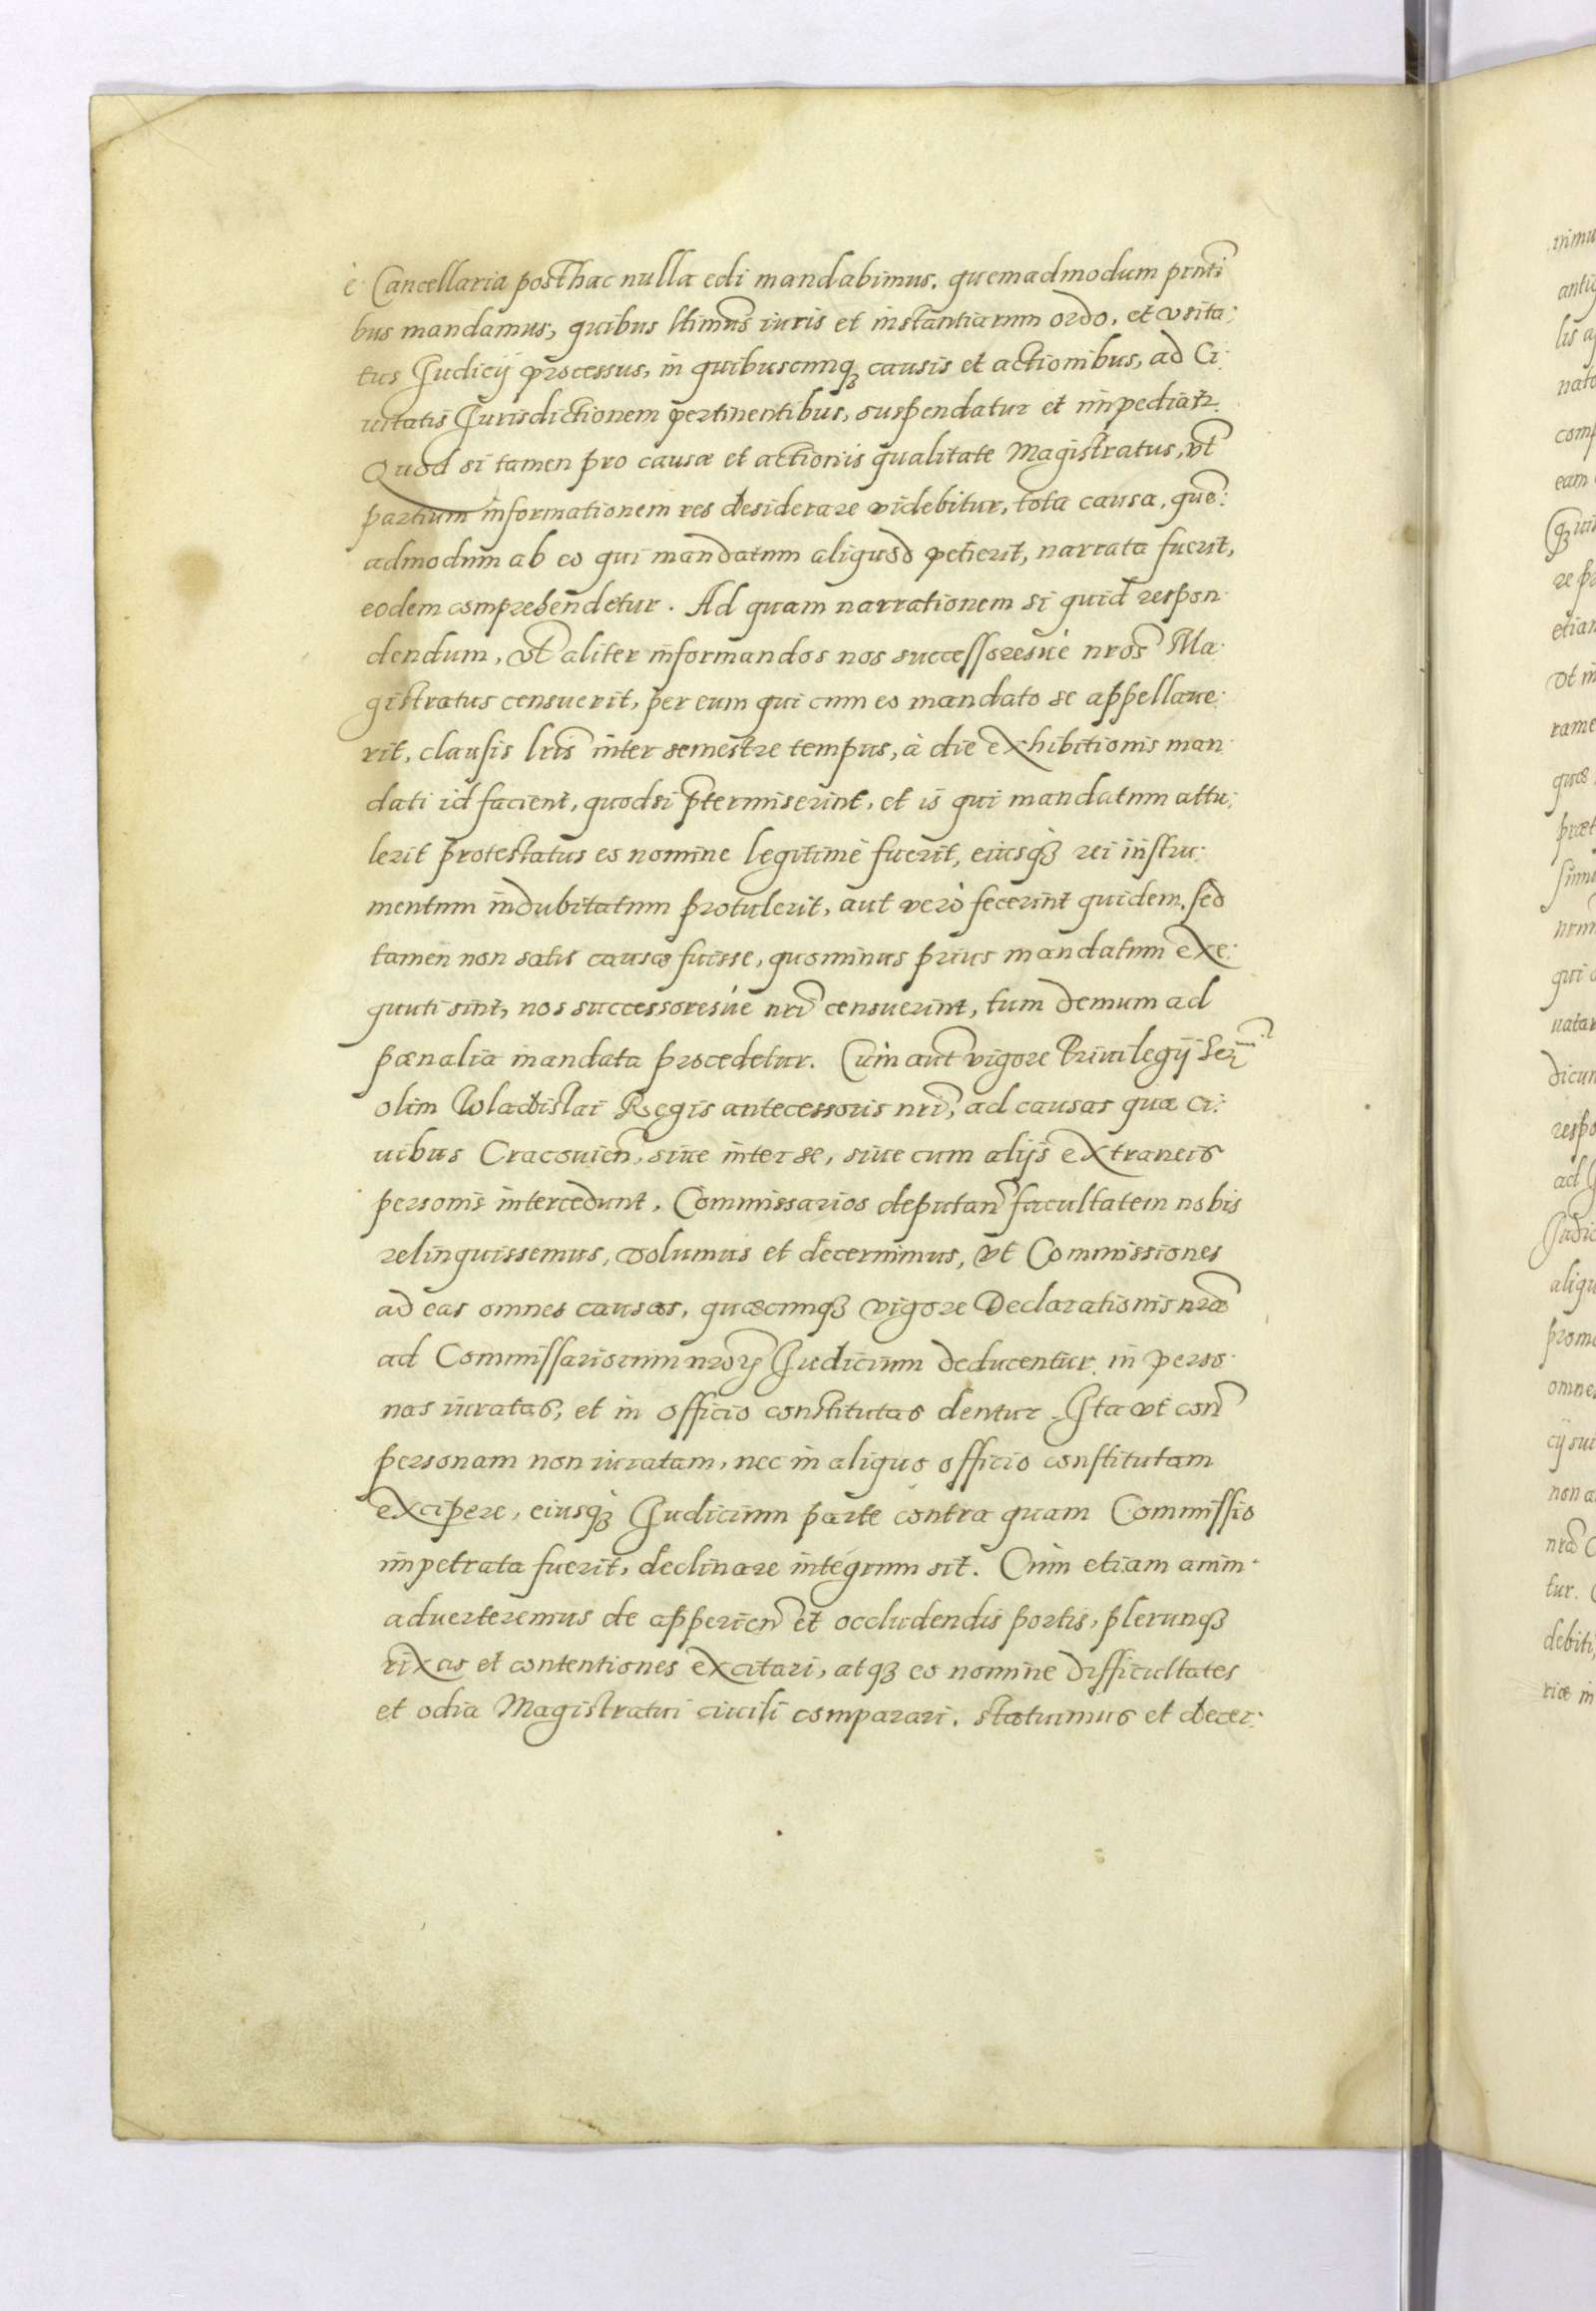 è Cancellaria posthac nulla edi mandabimus, quemadmodum pnti
bus mandamus, quibus ltimus iuris et instantiarum ordo, et vsita:
tus Iudicij processus, in quibuscunqȝ causis et actionibus, ad Ci:
uitatis Jurisdictionem pertinentibus, suspendatur et impediatr.
Quod si tamen pro causæ et actionis qualitate Magistratus, vl
partium informationem res desiderare videbitur, tota causa, que:
admodum ab eo qui mandatum aliquod petierit, narrata fuerit,
eodem comprehendetur. Ad quam narrationem si quid respon:
dendum, vel aliter informandos nos successoresuè nros Ma:
gistratus censuerit, per eum qui cum eo mandato se appellaue:
rit, clausis lris inter semestre tempus, à die exhibitionis man:
dati id facient, quodsi ptermiserint, et is qui mandatum attu:
lerit protestatus eo nomine legitimè fuerit, eiusqȝ rei instru:
mentum indubitatum protulerit, aut verò fecerint quidem, sed
tamen non satis causæ fuisse, quominus prius mandatum exe:
quuti sint, nos successoresuè nri censuerint, tum demum ad
pœnalia mandata procedetur. Cum aut vigore Priuilegij Ser
olim Wladislai Regis antecessoris nri, ad causas quæ ci:
uibus Cracouien, siue inter se, siue cum alijs extraneis
personis intercedunt, Commissarios deputan facultatem nobis
relinquissemus, volumus et decernimus, vt Commissiones
ad eas omnes causas, quæcunqȝ vigore Declarationis nræ
ad Commissariorum nroꝝ Judicium deducentur, in perso:
nas iuratas, et in officio constitutas dentur. Ita vt con
personam non iuratam, nec in aliquo officio constitutam
excipere, eiusqȝ Judicium parte contra quam Commissio
impetrata fuerit, declinare integrum sit. Cum etiam anim:
aduerteremus de apperien et occludendis portis, plerunqȝ
rixas et contentiones excitari, atqȝ eo nomine difficultates
et odia Magistratui ciuili comparari, statuimus et decer: